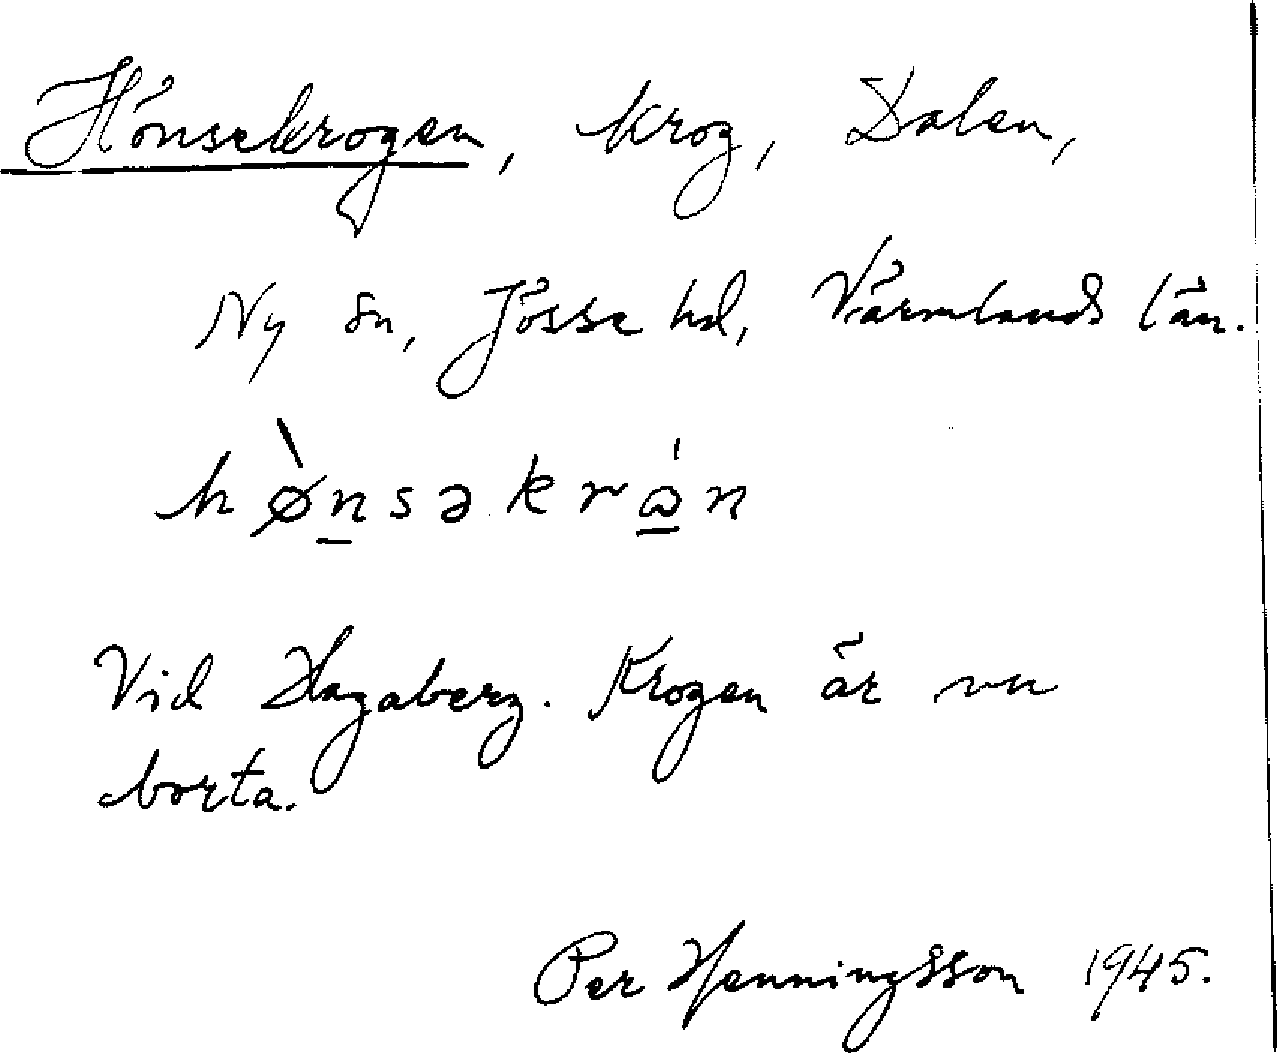 Hönsekrogen, krog, Dalen,
Ny sn, Jösse hd, Värmlands län.
hø̀n̲səkrώ̲n
Vid Hagaberg. Krogen är nu
borta.
Per Henningsson 1945.